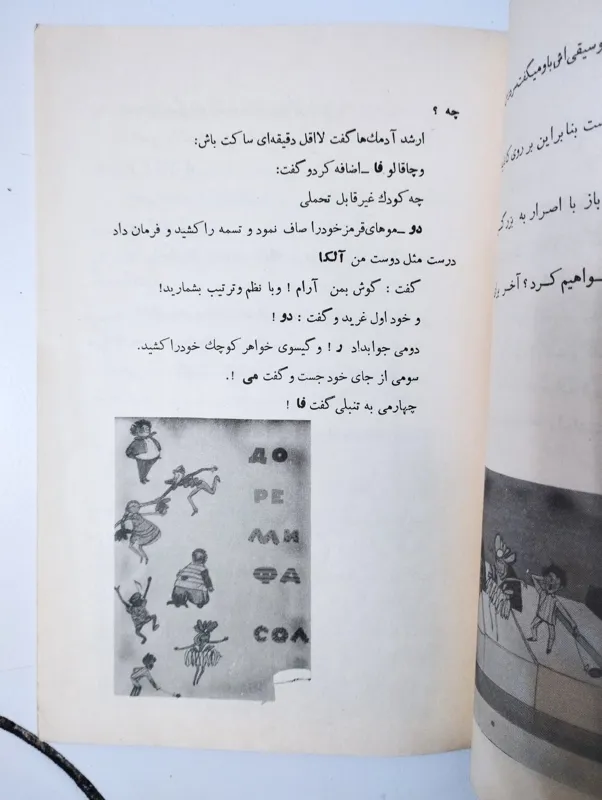 چه ؟
ارشد آدمك‌ها گفت لااقل دقیقه‌ای ساکت باش:
وچاقالو فا ــ اضافه کرد و گفت:
چه کودك غیرقابل تحملی
دو ــ موهای قرمز خودرا صاف نمود و تسمه را کشید و فرمان داد
درست مثل دوست من آلکا
گفت : گوش بمن آرام ! وبا نظم وترتیب بشمارید!
و خود اول غرید و گفت : دو !
دومی جوابداد ر ! و گیسوی خواهر کوچك خودرا کشید.
سومی از جای خود جست و گفت می !.
چهارمی به تنبلی گفت فا !
ДО
РЕ
МИ
ФА
СОЛ
وسیقی‌اش باو میگفتند
ست بنابراین بر روی
باز با اصرار به بزرگ
ـواهیم کرد؟ آخر